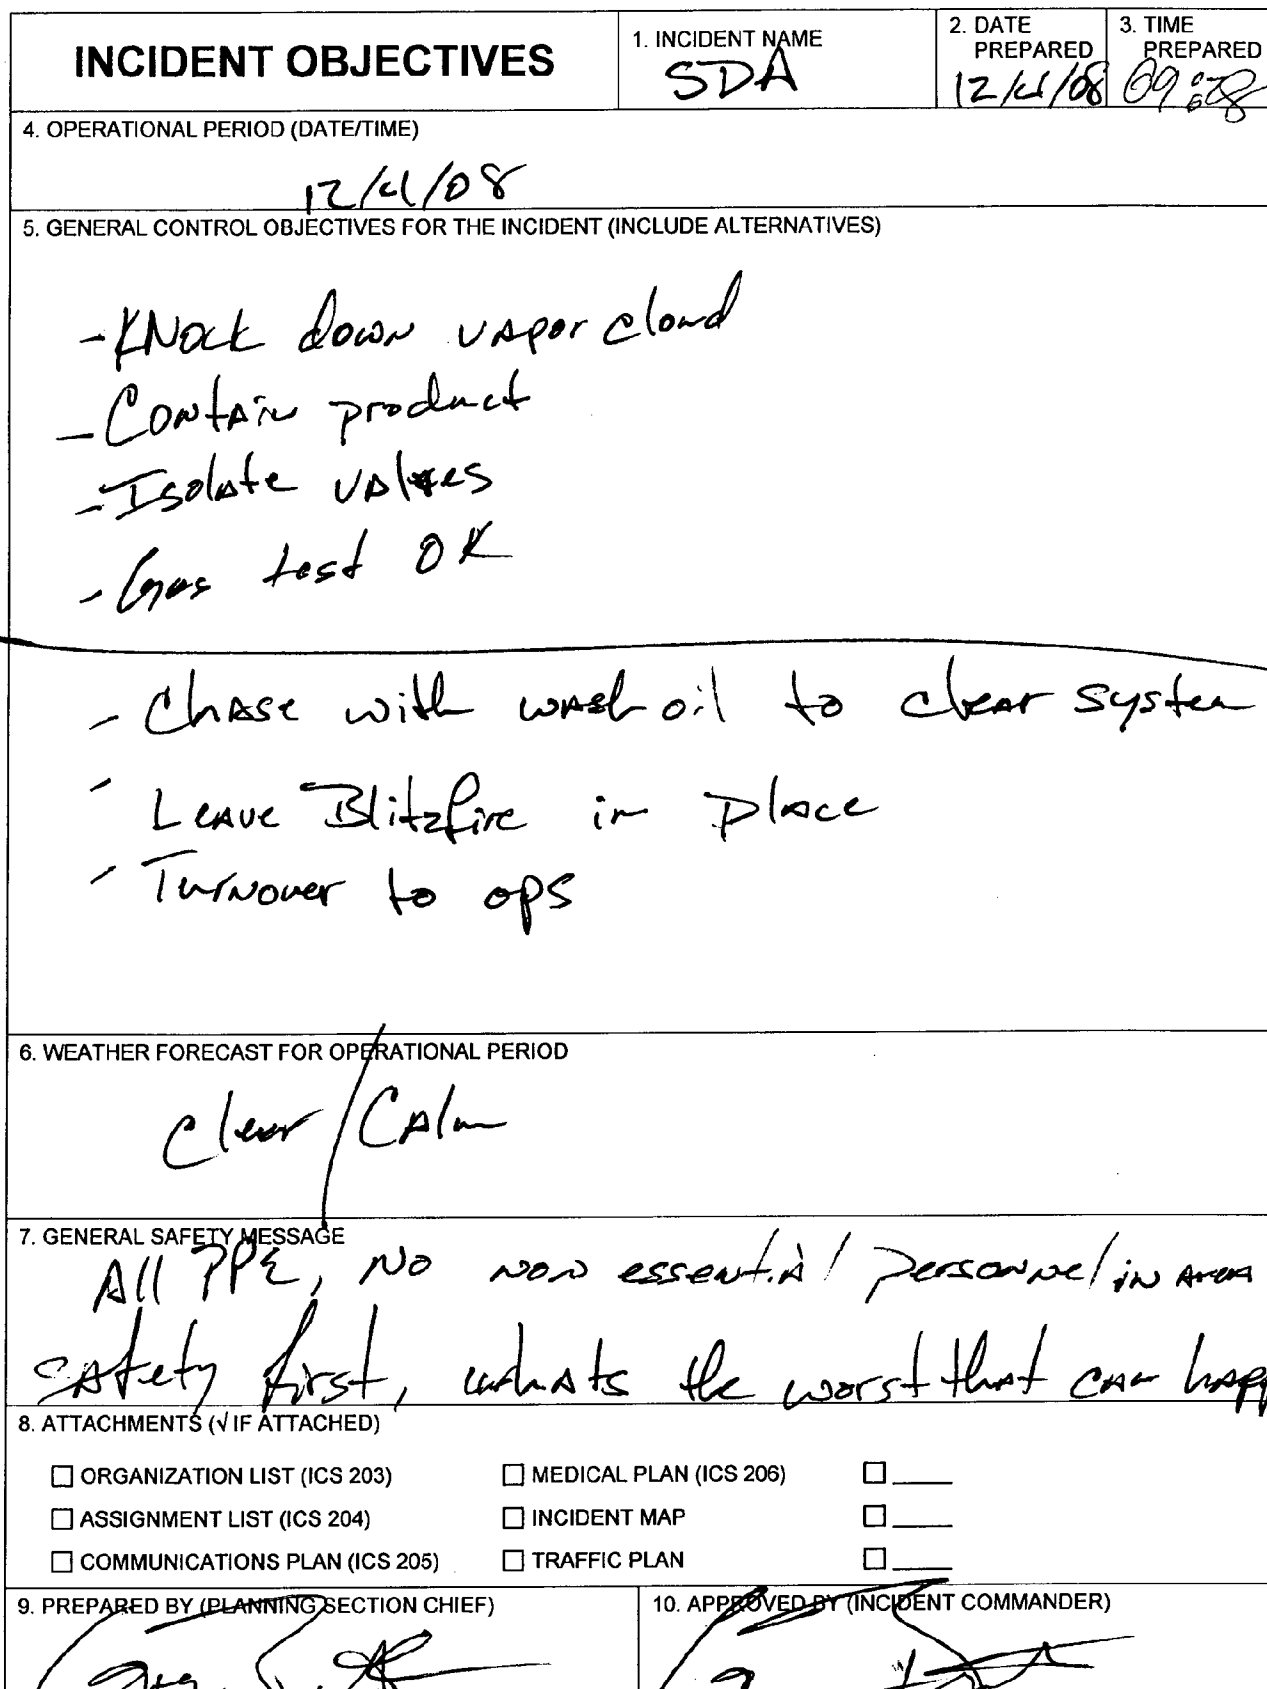 INCIDENT OBJECTIVES
1. INCIDENT NAME
SDA
2. DATE PREPARED
12/4/08
3. TIME PREPARED
09
4. OPERATIONAL PERIOD (DATE/TIME)
12/4/08
5. GENERAL CONTROL OBJECTIVES FOR THE INCIDENT (INCLUDE ALTERNATIVES)
- KNock down vapor cloud
- Contain product
- Isolate valves
- Gas test OK
- Chase with wash oil to clear system
- Leave Blitzfire in place
- Turnover to ops
6. WEATHER FORECAST FOR OPERATIONAL PERIOD
Clear / Calm
7. GENERAL SAFETY MESSAGE
All PPE, No non essential personnel in area
safety first, whats the worst that can happ
8. ATTACHMENTS (√ IF ATTACHED)
☐ ORGANIZATION LIST (ICS 203) ☐ MEDICAL PLAN (ICS 206) ☐ ____
☐ ASSIGNMENT LIST (ICS 204) ☐ INCIDENT MAP ☐ ____
☐ COMMUNICATIONS PLAN (ICS 205) ☐ TRAFFIC PLAN ☐ ____
9. PREPARED BY (PLANNING SECTION CHIEF)
10. APPROVED BY (INCIDENT COMMANDER)